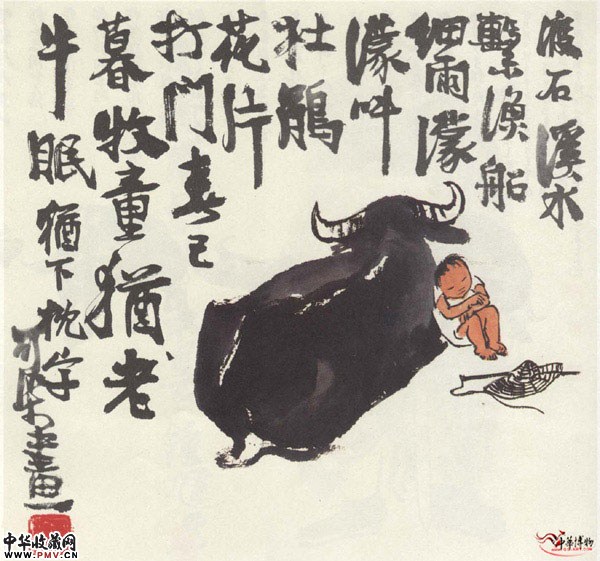 渡石溪水
繫漁船
細雨濛
濛叫
杜鵑
花片
打門春已
暮牧童猶老
牛眠猶下枕字
可染畫
中华收藏网
WWW.PMV.CN
中华博物